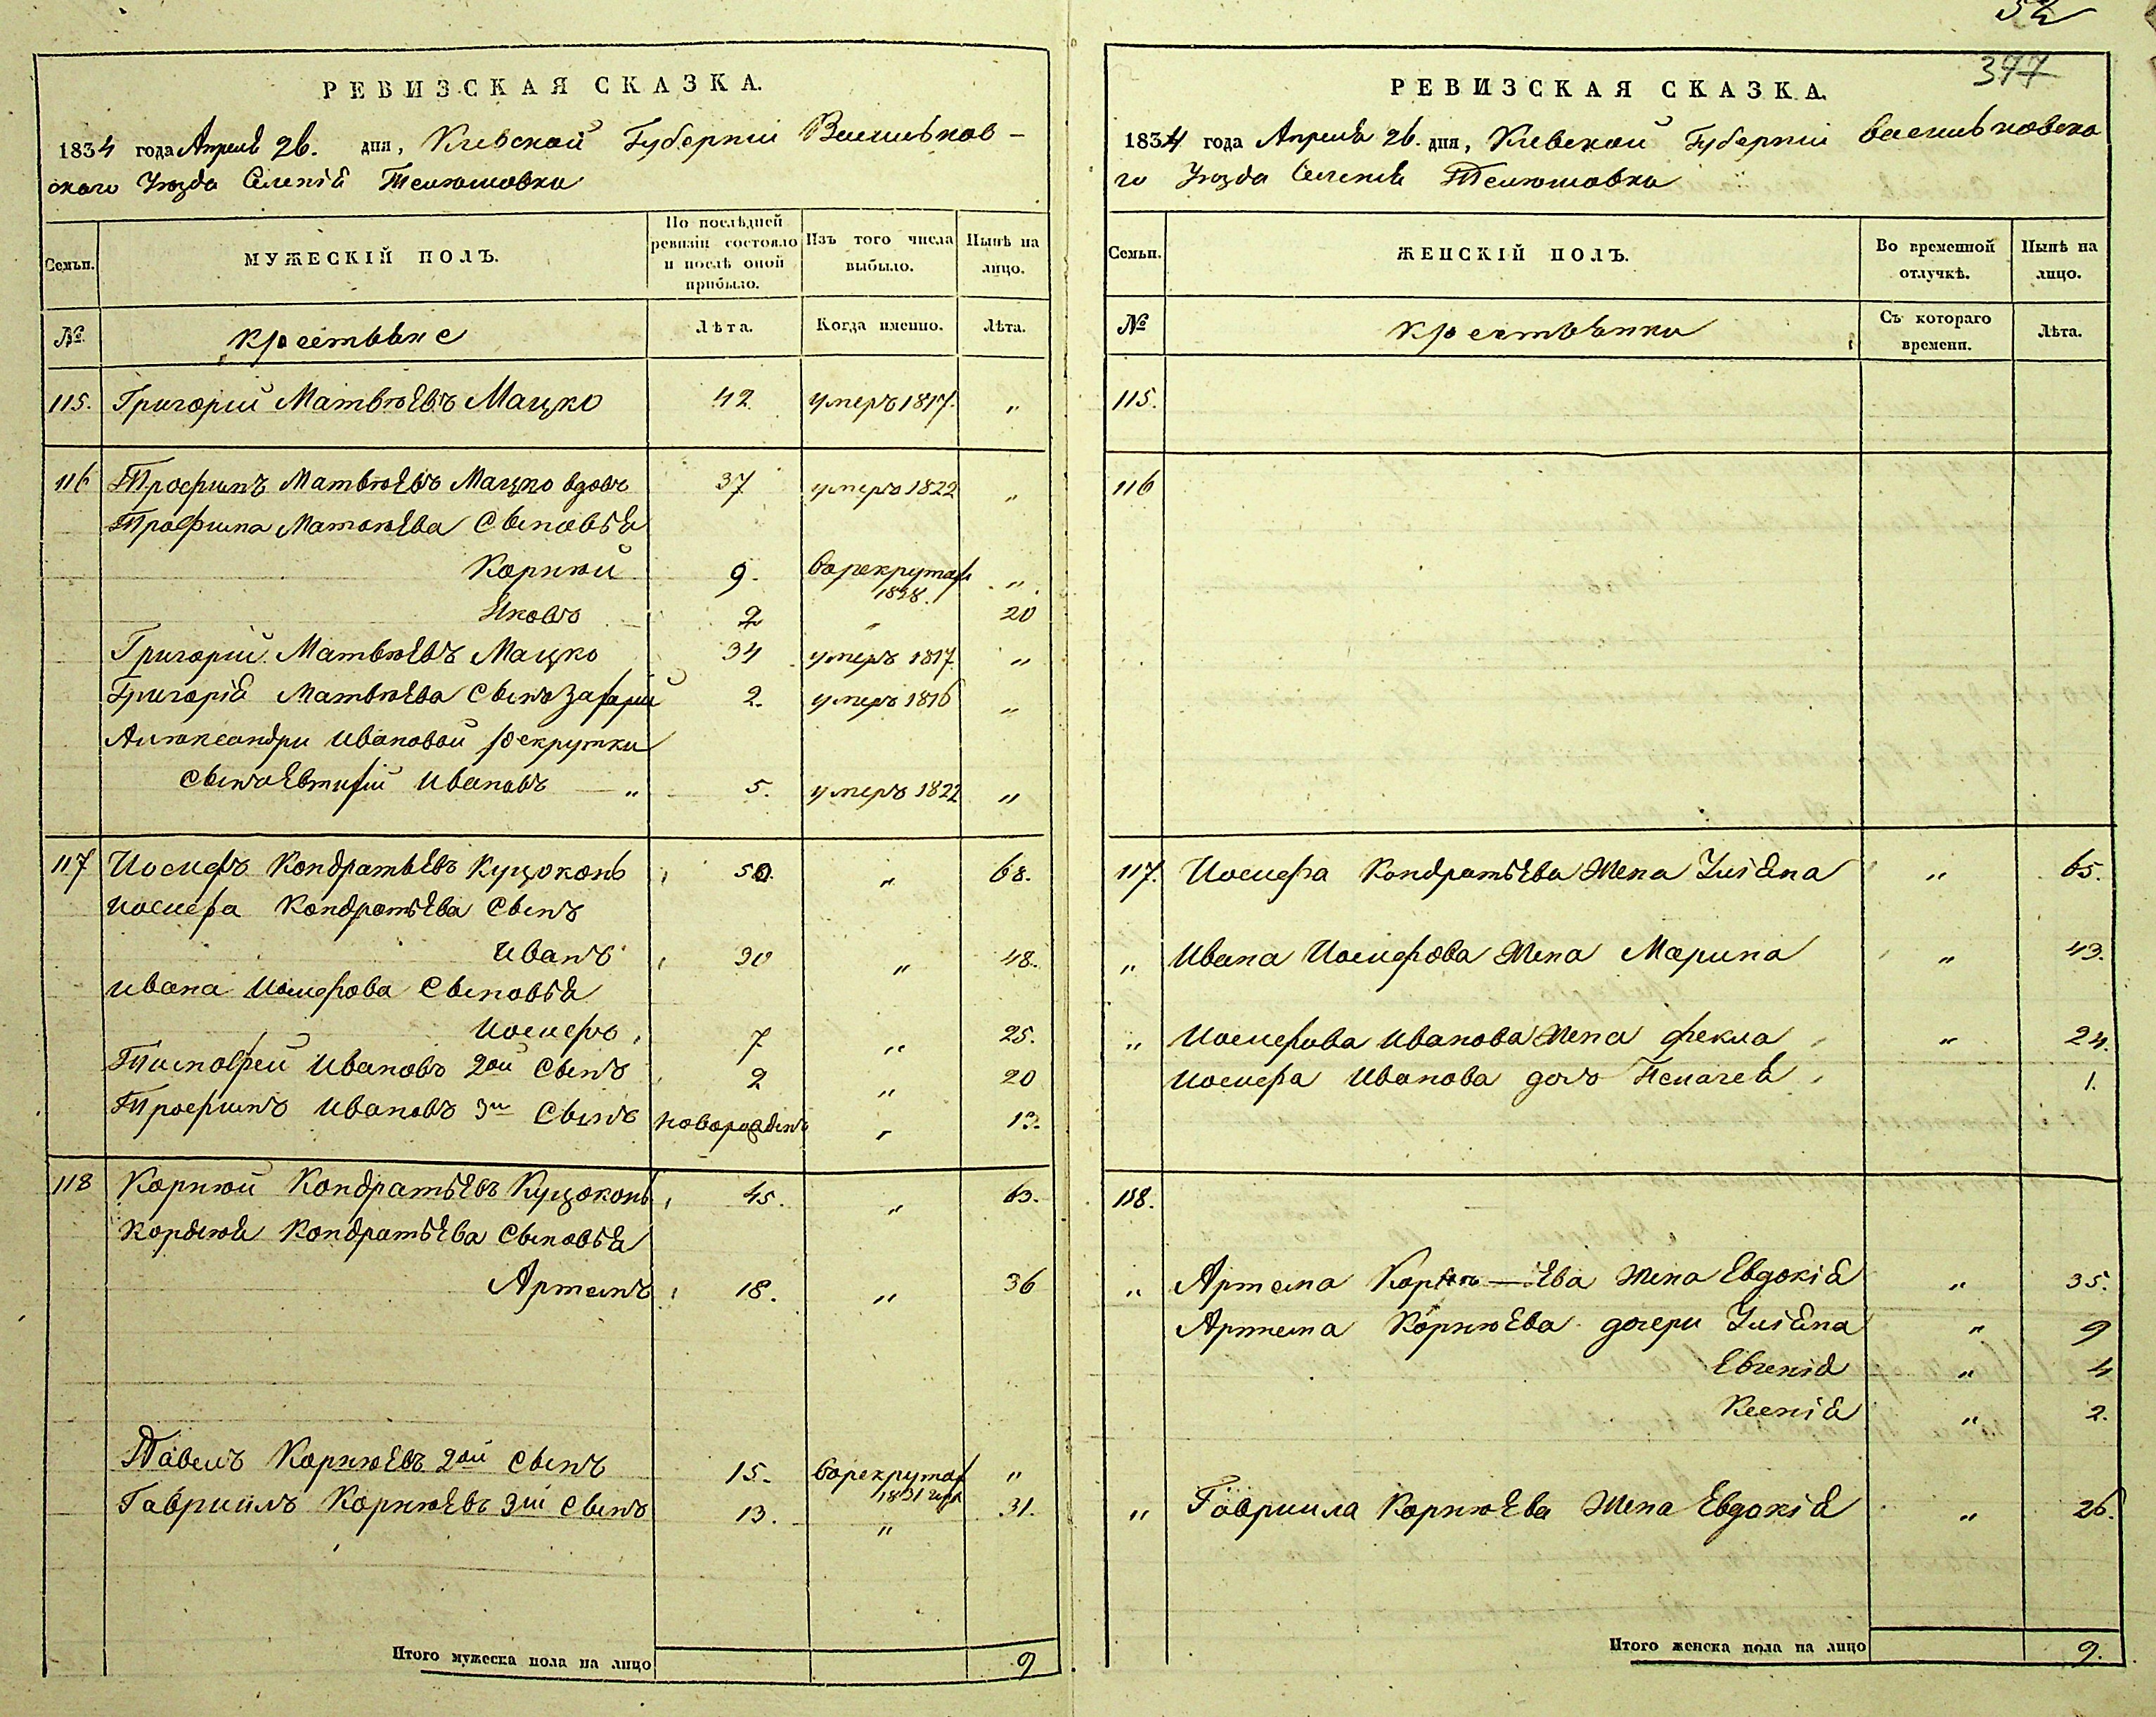 РЕВИЗСКАЯ СКАЗКА.
1834 года Апреля 26. дня, Киевской Губернiи Васильков-
скаго Уѣзда Селенiя
Семьи. МУЖЕСКIЙ ПОЛЪ. По послѣдней ревизiи состояло и послѣ оной прибыло. Изъ того числа выбыло. Нынѣ на лицо.
№ крестьяне Лѣта. Когда именно. Лѣта.
115. Григорiй Матвѣевъ Мацко 42 умеръ 1817. "
116 Трофимъ Матвѣевъ Мацко вдовъ 37 умеръ 1822 "
Трофима Матвѣева Сыновья
Корнѣй 9. врекрутах 1828. "
Яковъ 2 " 20
Григорiй Матвѣевъ Мацко 34 умеръ 1817. "
Григорiя Матвѣева Сынъ Захарiй 2. умеръ 1816 "
Александри Ивановой рекрутки
Сынъ Евтихiй Ивановъ " 5. умеръ 1822 "
117 Иосифъ Кондратьевъ Куцоконь 50. " 68.
Иосифа Кондратьева Сынъ
Иванъ 30 " 48.
Ивана Иосифова Сыновья
Иосифъ 7 " 25.
Тимофей Ивановъ 2ой Сынъ 2 " 20
Трофимъ Ивановъ 3й Сынъ новорожденъ " 13.
118 Корнѣй Кондратьевъ Куцоконь 45. " 63.
Корнѣя Кондратьева Сыновья
Артемъ 18. " 36
Павелъ Корнѣевъ 2ой Сынъ 15. врекрутах 1831 года "
Гавриилъ Корнѣевъ 3й Сынъ 13. " 31.
Итого мужеска пола на лицо 9
377
РЕВИЗСКАЯ СКАЗКА.
1834 года Апреля 26. дня, Киевской Губернiи Васильковска
го Уѣзда Селенiя
Семьи. ЖЕНСКIЙ ПОЛЪ. Во временной отлучкѣ. Нынѣ на лицо.
№ крестьянки Съ котораго времени. Лѣта.
115.
116
117. Иосифа Кондратьева Жена Улiяна " 65.
" Ивана Иосифова Жена Марина " 43.
" Иосифова Иванова Жена Фекла " 24.
Иосифа Иванова дочь Пелагея 1.
118.
" Артема Корнѣева Жена Евдокiя " 35.
Артема Корнѣева дочери Улiяна " 9
Евгенiя " 4
Ксенiя " 2.
" Гавриила Корнѣева Жена Евдокiя " 26.
Итого женска пола на лицо 9.